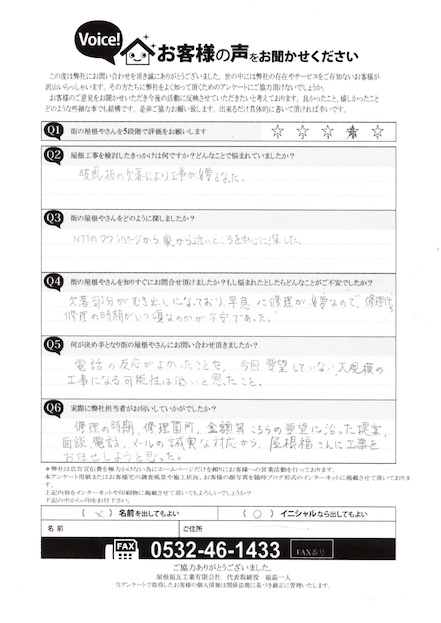 Voice!
お客様の声をお聞かせください
この度は弊社にお問い合わせを頂き誠にありがとうございました。世の中には弊社の存在やサービスをご存知ないお客様が
沢山いらっしゃいます。その方たちに弊社をよく知って頂くためのアンケートにご協力頂けないでしょうか。
お客様のご意見をお聞かせいただき今後の活動に反映させていただきたいと考えております。良かったこと、嬉しかったこと
どのような些細な事でも結構です。是非ご協力お願い致します。出来るだけ具体的に書いて頂ければ幸いです。
Q1 街の屋根やさんを5段階で評価をお願いします ☆ ☆ ☆ ☆ ☆
Q2 屋根工事を検討したきっかけは何ですか?どんなことで悩まれていましたか?
破風板の欠落により工事が必要となった。
Q3 街の屋根やさんをどのように探しましたか?
NTTのタウンページから家から近いところを中心に探した。
Q4 街の屋根やさんを知りすぐにお問合せ頂けましたか?もし悩まれたとしたらどんなことがご不安でしたか?
欠落部分がむき出しになっており、早急に修理が必要なので、修理代、
修理の時期がいつ頃なのかが不安であった。
Q5 何が決め手となり街の屋根やさんにお問い合わせ頂きましたか?
電話の反応がよかったことと、今回要望していない大規模の
工事になる可能性は低いと思ったこと。
Q6 実際に弊社担当者がお伺いしていかがでしたか?
修理の時期、修理箇所、金額等こちらの要望に沿った提案、
面談、電話、メールの誠実な対応から、屋根福さんに工事を
お任せしようと思った。
*弊社は広告宣伝費を極力かけない為にホームページだけを頼りにお客様への営業活動を行っております。
本アンケート用紙またはお客様宅の調査風景や施工状況、お客様の顔写真を随時ブログ形式のインターネットに掲載させて頂いております。
上記内容をインターネットや印刷物に掲載させて頂いてもよろしいでしょうか?
下記の中から○印をお付下さい。
( × ) 名前を出してもよい ( ○ ) イニシャルなら出してもよい
名前 ご住所
FAX 0532-46-1433 FAX番号
ご協力ありがとうございました。
屋根福瓦工業有限会社 代表取締役 福島一人
当アンケートで取得したお客様の個人情報は関係法規に基づき厳正に管理いたします。